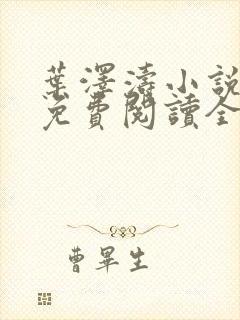 葉澤濤小說
免費閱讀全
曹畢生